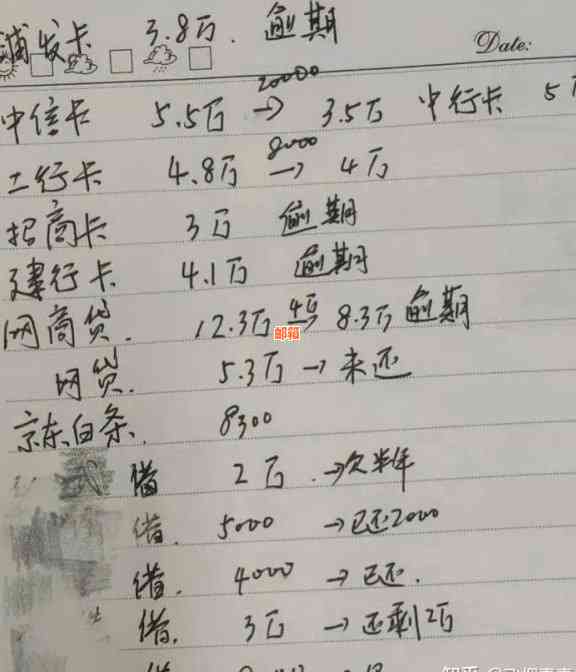 浦发卡 3.8万. 逾期
Date:
20000
中信卡 5.5万 → 3.5万 中行卡 5万
8000
工行卡 4.8万 → 4万
招商卡 3万 逾期
建行卡 4.1万 逾期
4万
网商贷. 12.3万 → 8.3万 逾期
邮箱
网贷. 5.3万 → 未还
京东白条. 8300
借 2万 → 欠半年
借. 5000 → 已还2000
借. 4000 → 已还.
借. 3万 → 还剩2万
知乎